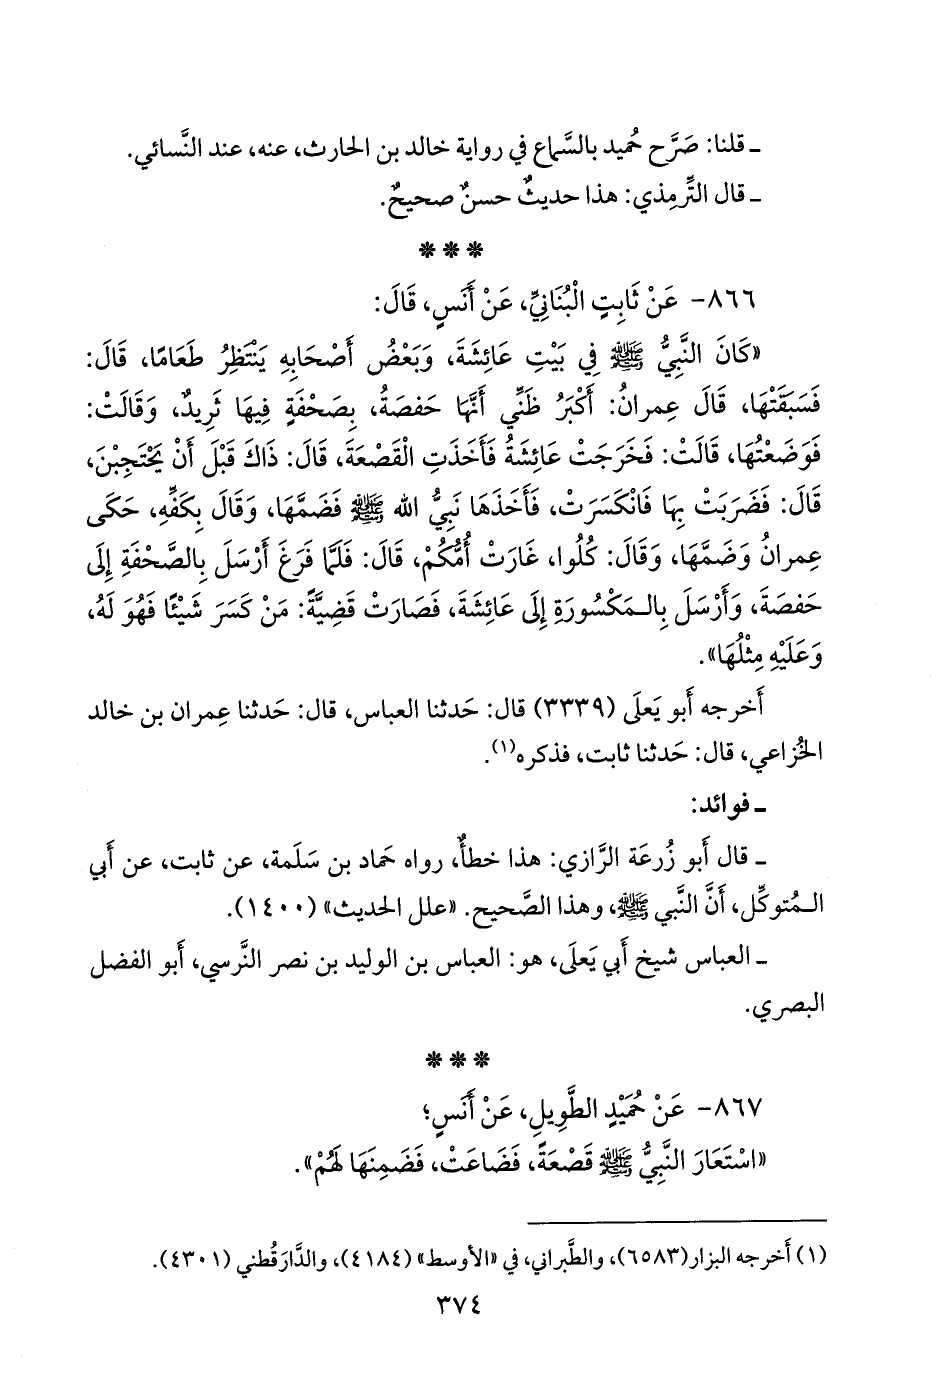 ـ قلنا: صَرَّح حُميد بالسَّماع في رواية خالد بن الحارث، عنه، عند النَّسائي.
ـ قال التِّرمِذي: هذا حديثٌ حسنٌ صحيحٌ.
***
٨٦٦- عَنْ ثَابِتٍ الْبُنَانِيِّ، عَنْ أَنَسٍ، قَالَ:
«كَانَ النَّبِيُّ ﷺ فِي بَيْتِ عَائِشَةَ، وَبَعْضُ أَصْحَابِهِ يَنْتَظِرُ طَعَامًا، قَالَ:
فَسَبَقَتْهَا، قَالَ عِمرانُ: أَكْبَرُ ظَنِّي أَنَّهَا حَفصَةُ، بِصَحْفَةٍ فِيهَا ثَرِيدٌ، وَقَالَتْ:
فَوَضَعْتُهَا، قَالَتْ: فَخَرَجَتْ عَائِشَةُ فَأَخَذَتِ الْقَصْعَةَ، قَالَ: ذَاكَ قَبْلَ أَنْ يَحْتَجِبْنَ،
قَالَ: فَضَرَبَتْ بِهَا فَانْكَسَرَتْ، فَأَخَذَهَا نَبِيُّ الله ﷺ فَضَمَّهَا، وَقَالَ بِكَفِّهِ، حَكَى
عِمرانُ وَضَمَّهَا، وَقَالَ: كُلُوا، غَارَتْ أُمُّكُمْ، قَالَ: فَلَمَّا فَرَغَ أَرْسَلَ بِالصَّحْفَةِ إِلَى
حَفصَةَ، وَأَرْسَلَ بِالـمَكْسُورَةِ إِلَى عَائِشَةَ، فَصَارَتْ قَضِيَّةً: مَنْ كَسَرَ شَيْئًا فَهُوَ لَهُ،
وَعَلَيْهِ مِثْلُهَا».
أَخرجه أَبو يَعلَى (٣٣٣٩) قال: حَدثنا العباس، قال: حَدثنا عِمران بن خالد
الخُزاعي، قال: حَدثنا ثابت، فذكره(١).
ـ فوائد:
ـ قال أَبو زُرعَة الرَّازي: هذا خطأٌ، رواه حَماد بن سَلَمة، عن ثابت، عن أَبي
الـمُتوكِّل، أَنَّ النَّبي ﷺ، وهذا الصَّحيح. «علل الحديث» (١٤٠٠).
ـ العباس شيخ أَبي يَعلَى، هو: العباس بن الوليد بن نصر النَّرسي، أَبو الفضل
البصري.
***
٨٦٧- عَنْ حُمَيْدٍ الطَّوِيلِ، عَنْ أَنَسٍ؛
«اسْتَعَارَ النَّبِيُّ ﷺ قَصْعَةً، فَضَاعَتْ، فَضَمِنَهَا لَهُمْ».
(١) أَخرجه البزار (٦٥٨٣)، والطَّبراني، في «الأَوسط» (٤١٨٤)، والدَّارَقُطني (٤٣٠١).
٣٧٤